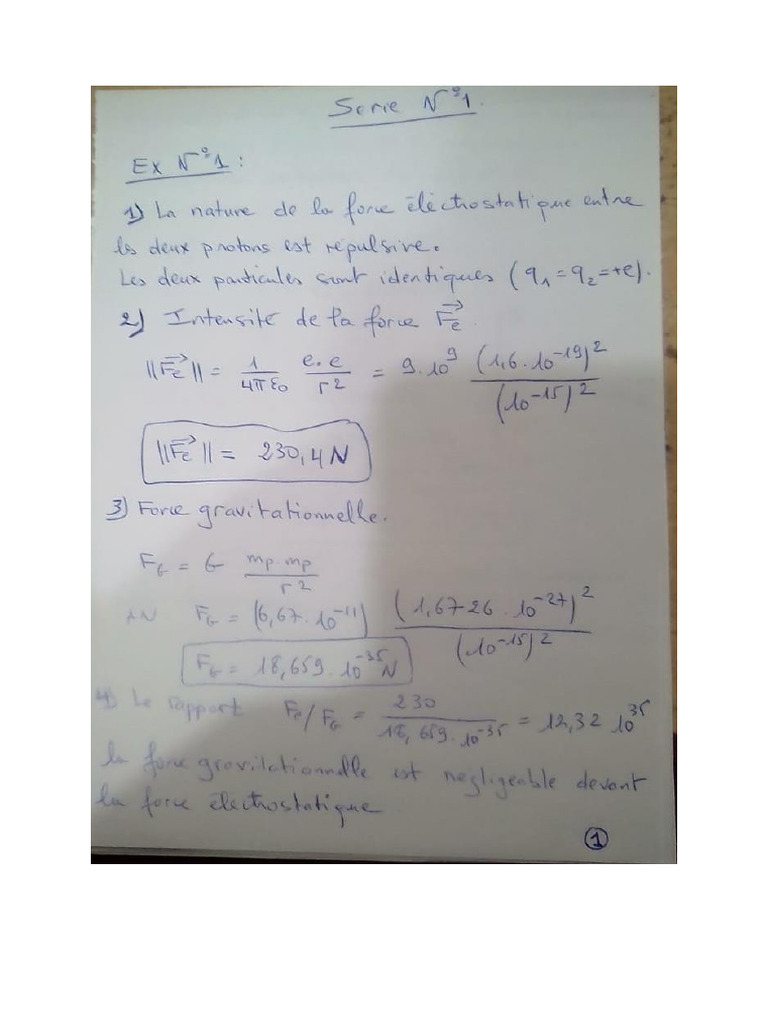 Serie N°1.
Ex N°1 :
1) La nature de la force éléctrostatique entre
les deux protons est répulsive.
Les deux particules sont identiques (q₁ = q₂ = +e).
2) Intensité de la force \vec{Fe}.
||\vec{Fe}|| = \frac{1}{4πε₀} \frac{e.e}{r²} = 9.10⁹ \frac{(1,6.10⁻¹⁹)²}{(10⁻¹⁵)²}
||\vec{Fe}|| = 230,4 N
3) Force gravitationnelle.
F_G = G \frac{mp.mp}{r²}
AN F_G = (6,67.10⁻¹¹) \frac{(1,6726.10⁻²⁷)²}{(10⁻¹⁵)²}
F_G = 18,659.10⁻³⁵ N
4) Le rapport Fe/F_G = \frac{230}{18,659.10⁻³⁵} = 12,32 10³⁵
la force gravitationnelle est negligeable devant
la force électrostatique
1